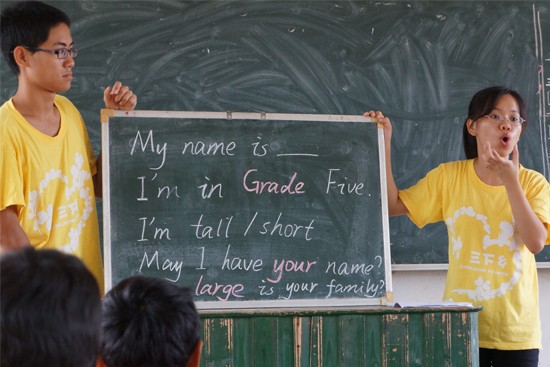 My name is ___
I'm in Grade Five.
I'm tall / short
May I have your name?
large is your family?